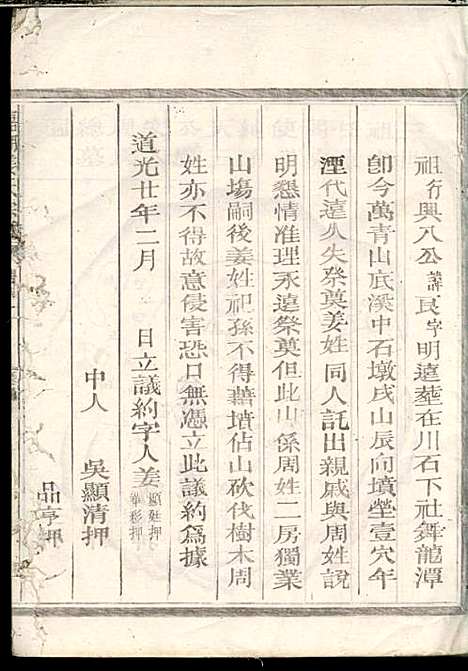 祖行興八公諱民字明遠葬在川石下社舞龍潭
即今萬青山底溪中石墩戌山辰向墳塋壹穴年
湮代遠久失祭奠姜姓同人託出親戚與周姓說
明懇情准理永遠祭奠但此山係周姓二房獨業
山塲嗣後姜姓祀孫不得藉墳佔山砍伐樹木周
姓亦不得故意侵害恐口無憑立此議約爲據
道光廿年二月 日立議約字人姜顯姓押 華彩押
中人 吳顯清押
品亨押